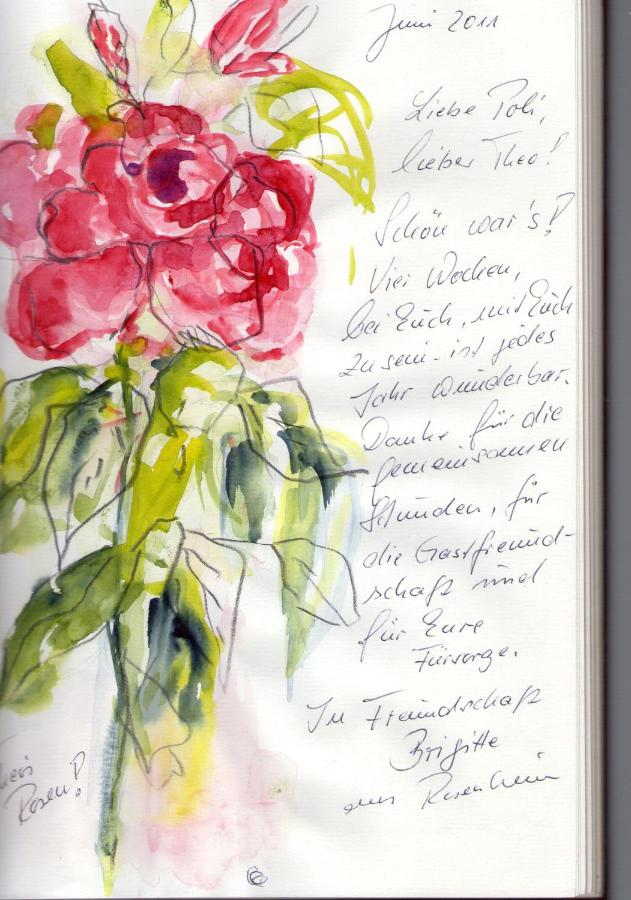 Juni 2011
Liebe Poli,
lieber Theo!
Schön war's!
Vier Wochen,
bei Euch, mit Euch
zu sein - ist jedes
Jahr wunderbar.
Danke für die
gemeinsamen
Stunden, für
die Gastfreund-
schaft und
für Eure
Fürsorge.
In Freundschaft
Brigitte
aus Rosenheim
Rosen!